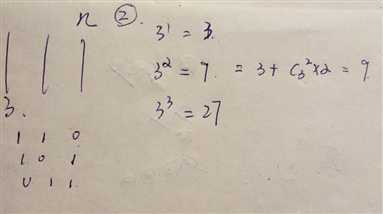 n ②.
3¹ = 3.
3² = 9. = 3 + C₃² × 2 = 9
3³ = 27
3.
1 1 0
1 0 1
0 1 1